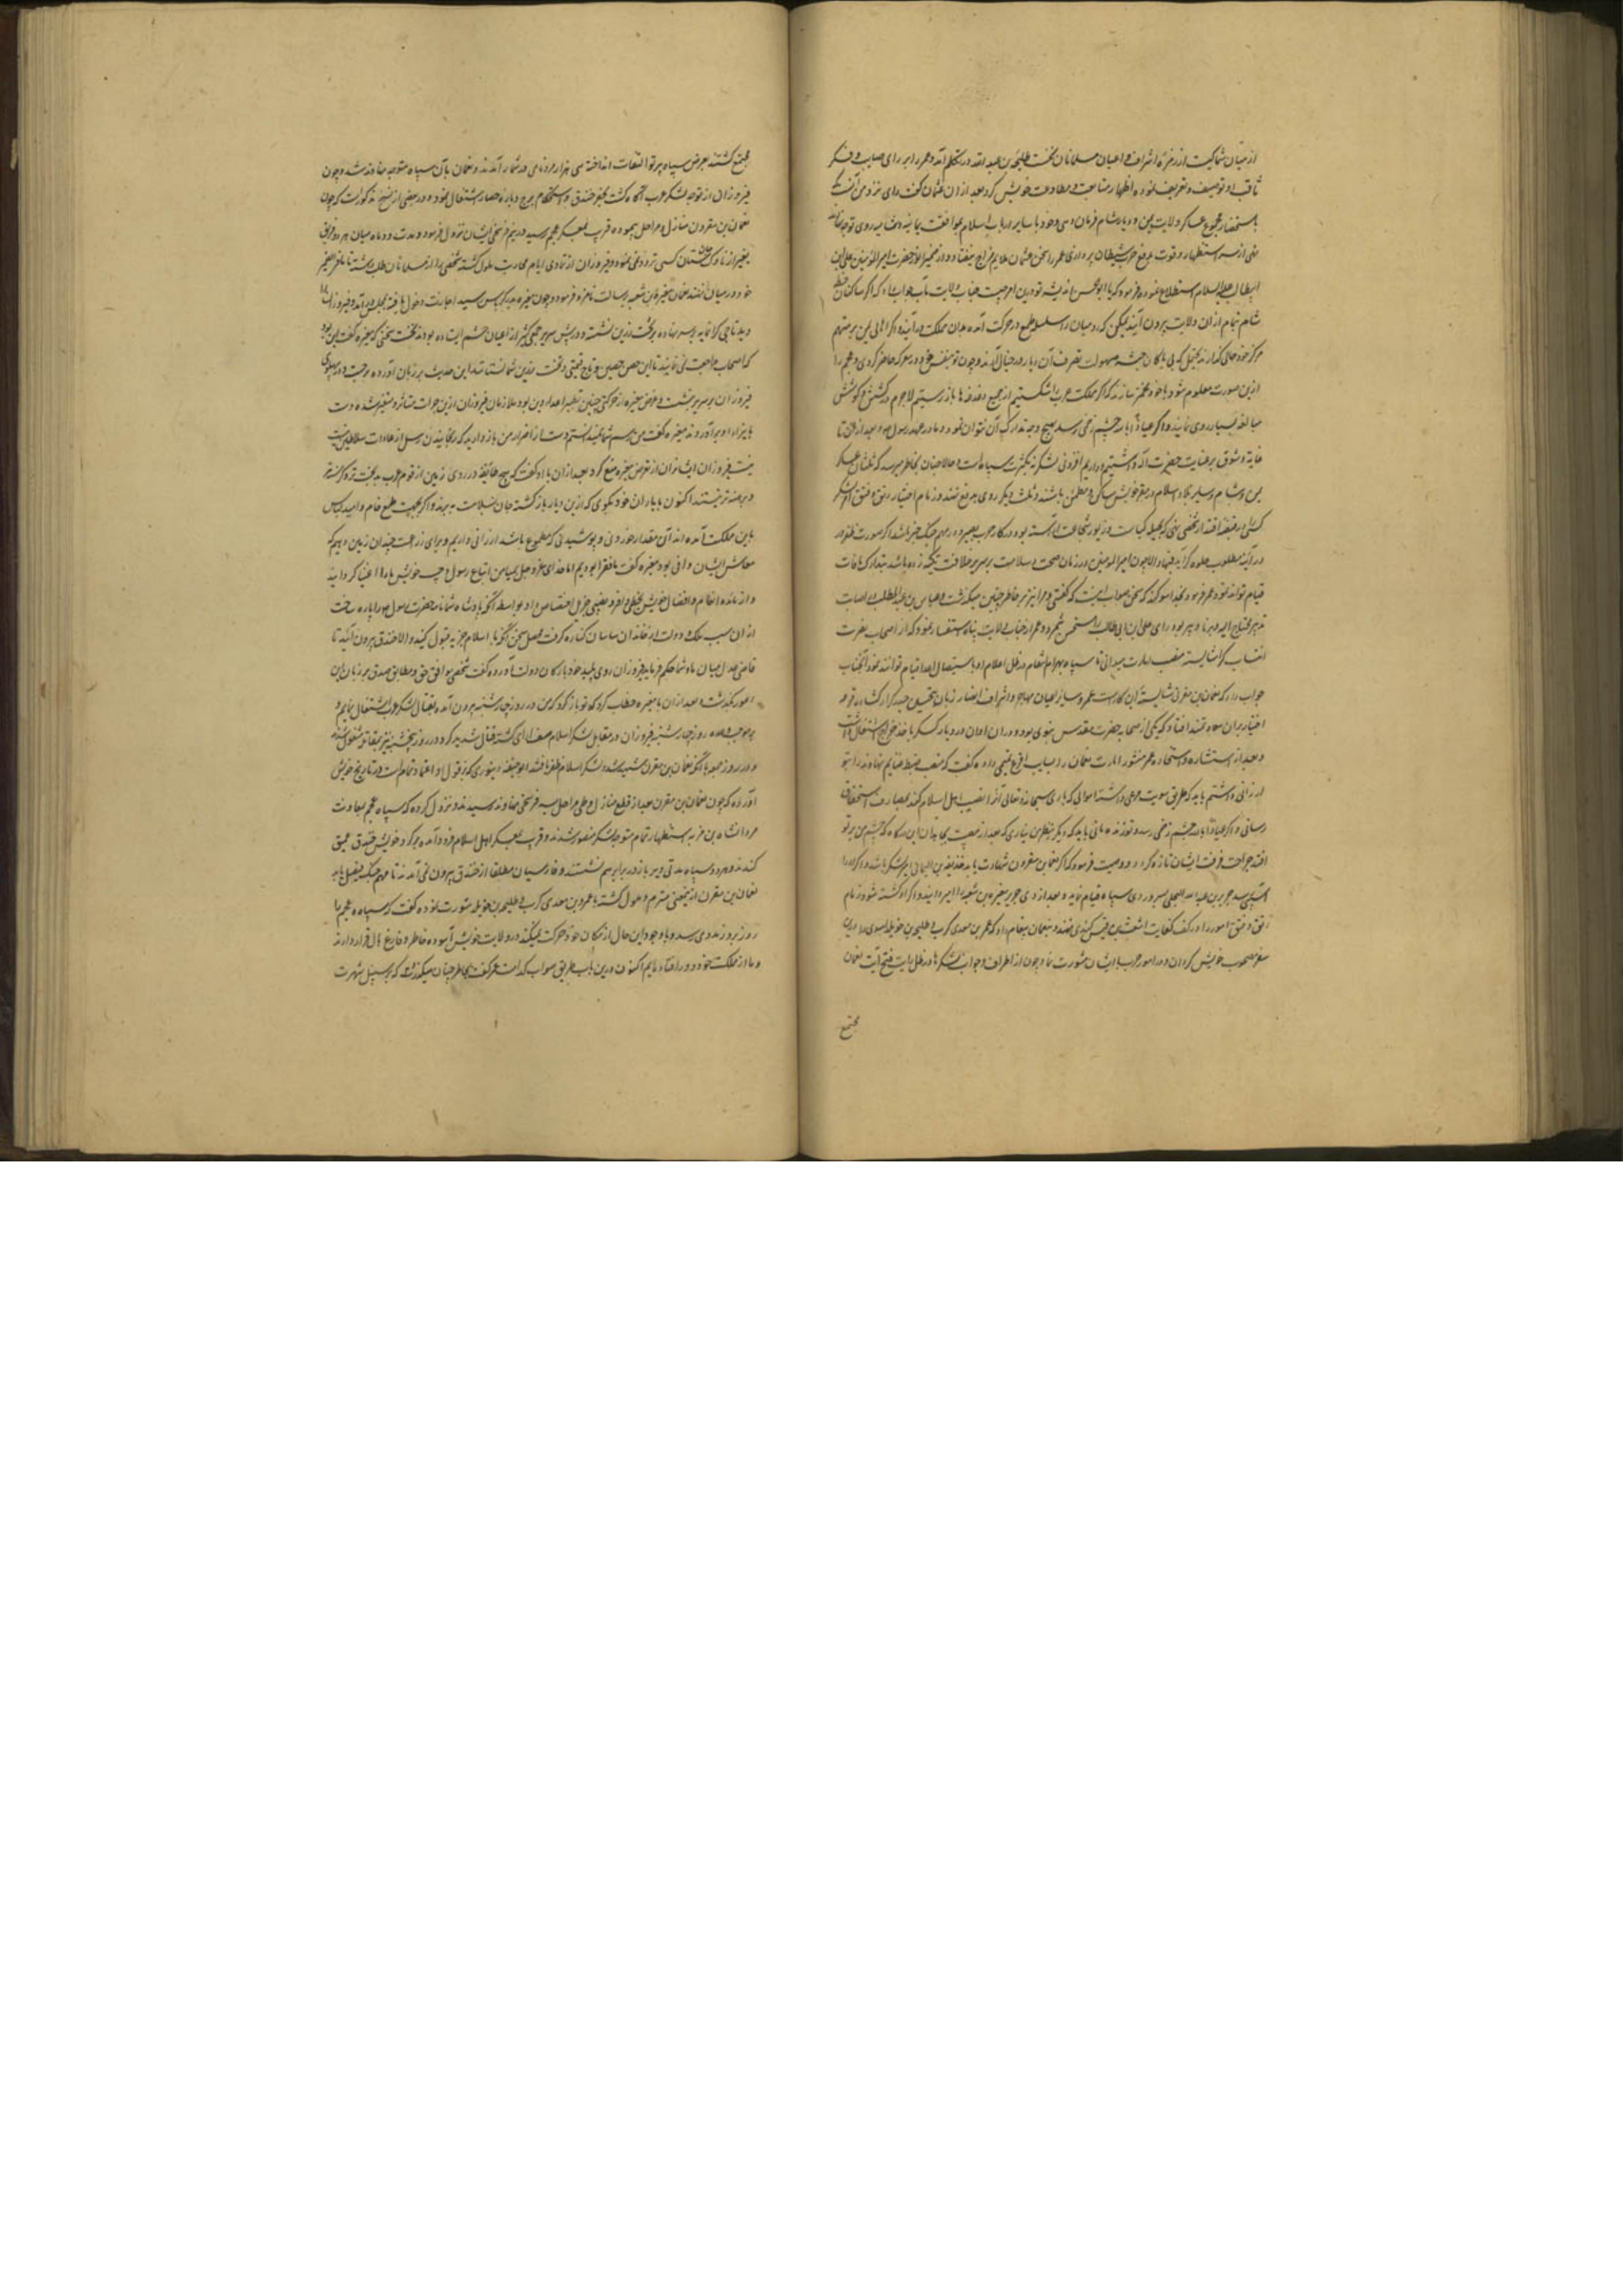 از میان شما کیست از زمرهٔ اشراف و اعیان مسلمانان نخست طلیحه بن عبید الله در تکلم آمده و عمر را بر رای صایب و فکر
ثاقب او توصیف و تعریف نموده اظهار متابعت و مطاوعت خویش کرد بعد از ان عثمان گفت رای نزد من آنست که
باستحضار مجموع عساکر ولایت یمن و دیار شام فرمان دهی و خود با سایر ارباب اسلام بموافقت یمانیه و شامیه روی توجه
بدفع حزب شیطان پردازی عمر را سخن عثمان ملایم مزاج نیفتاد و در تخمیر از حضرت امیر المومنین علی بن
ابیطالب علیه السلام استطلاع نموده فرمود که یا ابو الحسن اندیشه تو درین امر چیست جناب ولایت مآب جواب داد که اگر ساکنان خطه
شام بتمام از ان ولایت بیرون آیند یمکن که رومیان را سلسله طمع در حرکت آمده بدان مملکت در آیند و اگر اهالی یمن بر متهم
مرکز خود خالی گذارند یحتمل که بی باکان حبشه بسهولت تصرف آن دیار در خیال آرند و چون تو بنفس خود در معرکه حاضر گردی و عجم را
ازین صورت معلوم شود با خود مخمر سازند که اگر مملکت عرب را شکستیم از جمیع دغدغها باز رستیم لاجرم در کشش و کوشش
مبالغه بسیار روی نمایند و اگر عیاذا بالله چشم زخمی رسد بهیچ وجه تدارک آن نتوان نمود و ما در عهد رسول و بعد از ان تا
غایه وثوق بر عنایت حضرت اله داشتیم و داریم افزونی لشکر نه بکثرت سپاه است و حالا چنان بخاطر میرسد که ثلثان عسکر
یمن و شام و سایر بلاد اسلام در مقر خویش ساکن و مطمئن باشند و ثلث دیگر روی بدفع نهند و زمام اختیار رتق و فتق آن لشکر
در آینه مطلوب جلوه گر آید فبها و الا چون امیر المومنین در زمان صحت و سلامت بر سریر خلافت تکیه زده باشد بتدارک مافات
قیام تواند نمود عمر فرمود بخدا سوگند که سخن صواب اینست که گفتی و مرا نیز بر خاطر چنین میگذشت و عباس بن عبد المطلب اصابت
تدبیر رای علی بن ابی طالب را مستحسن شمرده و عمر از جناب ولایت پناه استفسار نمود که از اصحاب نصرت
انتساب کرا شایسته منصب امارت میدانی تا سپاه بهرام انتقام در ظل اعلام او باستیصال اعدا قیام توانند نمود آنجناب
جواب داد که نعمان بن مقرن شایسته این کار است عمر و سایر اعیان مهاجر و اشراف انصار زبان بتحسین حیدر کرار گشاده قرعه
اختیار بران سعادتمند افتاد که یکی از صحابه حضرت مقدس نبوی بود و دران اوان در دیار کسکر باخذ خراج اشتغال داشت
و بعد از استشاره و استخاره عمر منشور امارت نعمان را بسایب اقرع ثقفی داده گفت که منصب ضبط غنایم نهاوند را بتو
ارزانی داشتم باید که طریق سویت مرعی داشته اموالی که باری سبحانه و تعالی آنرا نصیب اهل اسلام کند بمصارف استحقاق
رسانی و اگر عیاذا بالله چشم زخمی رسد و تو زنده مانی باید که دیگر بنظر من نیایی که بعد از مصیبت مجاهدان این درگاه که چشم من بر تو
افتد جراحت فرقت ایشان تازه گردد و وصیت فرمود که اگر نعمان بن مقرن شهادت یابد حذیفه بن الیمانی امیر لشکر باشد و اگر او را
آسیبی رسد جریر بن عبد الله البجلی بسروردی سپاه قیام نماید و بعد از وی جریر مغیره بن شعبه را امیر دانید و اگر او کشته شود زمام
رتق و فتق امور را در کف کفایت اشعث بن قیس کندی نهند و بنعمان پیغام داد که عمرو بن معدی کرب و طلیحه بن خویلد اسدی را درین
سفر مصحوب خویش گردان و در امور حرب با ایشان مشورت نما و چون از اطراف و جوانب لشکرها در ظل رایت فتح آیت نعمان
مجتمع
مجتمع گشتند بعرض سپاه پرتو التفات انداخته سی هزار مرد نامی در شمار آمدند و نعمان بآن سپاه متوجه نهاوند شد و چون
فیروزان از توجه لشکر عرب آگاه گشت بحفر خندق و استحکام برج و باره حصار اشتغال نمود و در بعضی از نسخ مذکورست که چون
نعمان بن مقرن منازل و مراحل پیموده قریب بمعسکر عجم رسید در نیم فرسخی ایشان نزول فرمود و مدت دو ماه میان هر دو فریق
بغیر از ناوک جان ستان کسی تردد نمی نمود و فیروزان از تمادی ایام محاربت ملول گشته شخصی را از مسلمانان طلب داشته تا ما فی الضمیر
خود در میان نهند نعمان مغیره بن شعبه برسالت نامزد فرمود و چون مغیره بدرگه پس سید اجازت دخول یافته بمجلس در آمد و فیروزان را
دید تاجی گرانمایه بر سر نهاده بر تخت زرین نشسته و در پیش سریر جمعی کثیر از اعیان حشم ایستاده بودند نخست سخنی که مغیره گفت این بود
که اصحاب ما رجعت نمی نمایند تا این حصن حصین و تاج قیمتی و تخت زرین شما نستانند این حدیث بر زبان آورده برجست و در پهلوی
فیروزان بر سریر نشست و غرض مغیره از حرکتی چنین تحقیر اعدای دین بود ملازمان فیروزان ازین جرات متاثر و متغیر شده دست
بایذاء او بر آوردند مغیره گفت من برسم شما آمدن نستم دست از اضرار من باز دارید که رنجانیدن رسل از عادات سلاطین نیست
فیروزان ایشانرا از تعرض مغیره منع کرد بعد از ان با او گفت که هیچ طائفه در روی زمین از قوم عرب بدبخت تر و گرسنه تر
و برهنه تر نیستند اکنون با یاران خود بگوی که ازین دیار باز گشته جان بسلامت ببرند و اگر بجهت طمع خام و امید لباس
باین مملکت آمده اند آن مقدار خوردنی و پوشیدنی که مطموع باشد ارزانی داریم و برای زراعت چندان زمین دهیم که
معاش ایشان وافی بود مغیره گفت ما فقرا بودیم اما خدای عز و جل بمیامن اتباع رسول و حبیب خویش ما را اغنیا گردانید
و از مائده انعام و افضال خویش بحظی وافر و نصیبی جزیل اختصاص داد بواسطه آنکه پادشاه شما نامه حضرت رسول را پاره ساخت
از ان سبب ملک و دولت از خاندان ساسان کناره گرفت محصل سخن آنکه یا اسلام جزیه قبول کنید و الا از خندق بیرون آئید تا
قاضی عدل میان ما و شما حکم فرماید فیروزان روی پلید خود بارکان دولت آورده گفت شخصی موافق حق و مطابق صدق بر زبان این
امور بگذشت و بعد از ان با مغیره خطاب کرد که تو باز گرد که من در روز چهارشنبه بیرون آمده بقتال لشکر عرب اشتغال نمایم و
بر موجب وعده روز چهارشنبه فیروزان در مقابل لشکر اسلام صف آرای گشته قتال شدید کرد و در روز پنجشنبه نیز بمقاتله مشغول شدند
و در روز جمعه با آنکه نعمان بن مقرن شهید شد لشکر اسلام ظفر یافتند ابو حنیفه دینوری که بر قول او اعتماد تمام است در تاریخ خویش
آورده که چون نعمان بن مقرن بعد از قطع منازل و طی مراحل بسه فرسخی نهاوند رسید نزول کرده که سپاه عجم بمعاونت
مردانشاه بن هرمز باستظهار تمام متوجه لشکر منصور شدند و قریب بمعسکر اهل اسلام فرود آمده بر گرد خویش خندق عمیق
کندند و هر دو سپاه مدتی دیر باز در برابر هم نشستند و فارسیان مطلقا از خندق بیرون نمی آمدند تا مهم جنگ بفیصل یابد
نعمان بن مقرن از معنی متبرم و ملول گشته با عمرو بن معدی کرب و طلیحه بن خویلد مشورت نموده گفت که سپاه عجم را
روز بروز مددی میرسد و با وجود این حال از مکان خود حرکت نمیکنند و در ولایت خویش آسوده خاطر و فارغ بال قرار دارند
و ما از مملکت خود دور افتاده ایم اکنون درین باب طریق صواب کدامست عمرو گفت بخاطر چنان میگذرد که بر سبیل شهرت